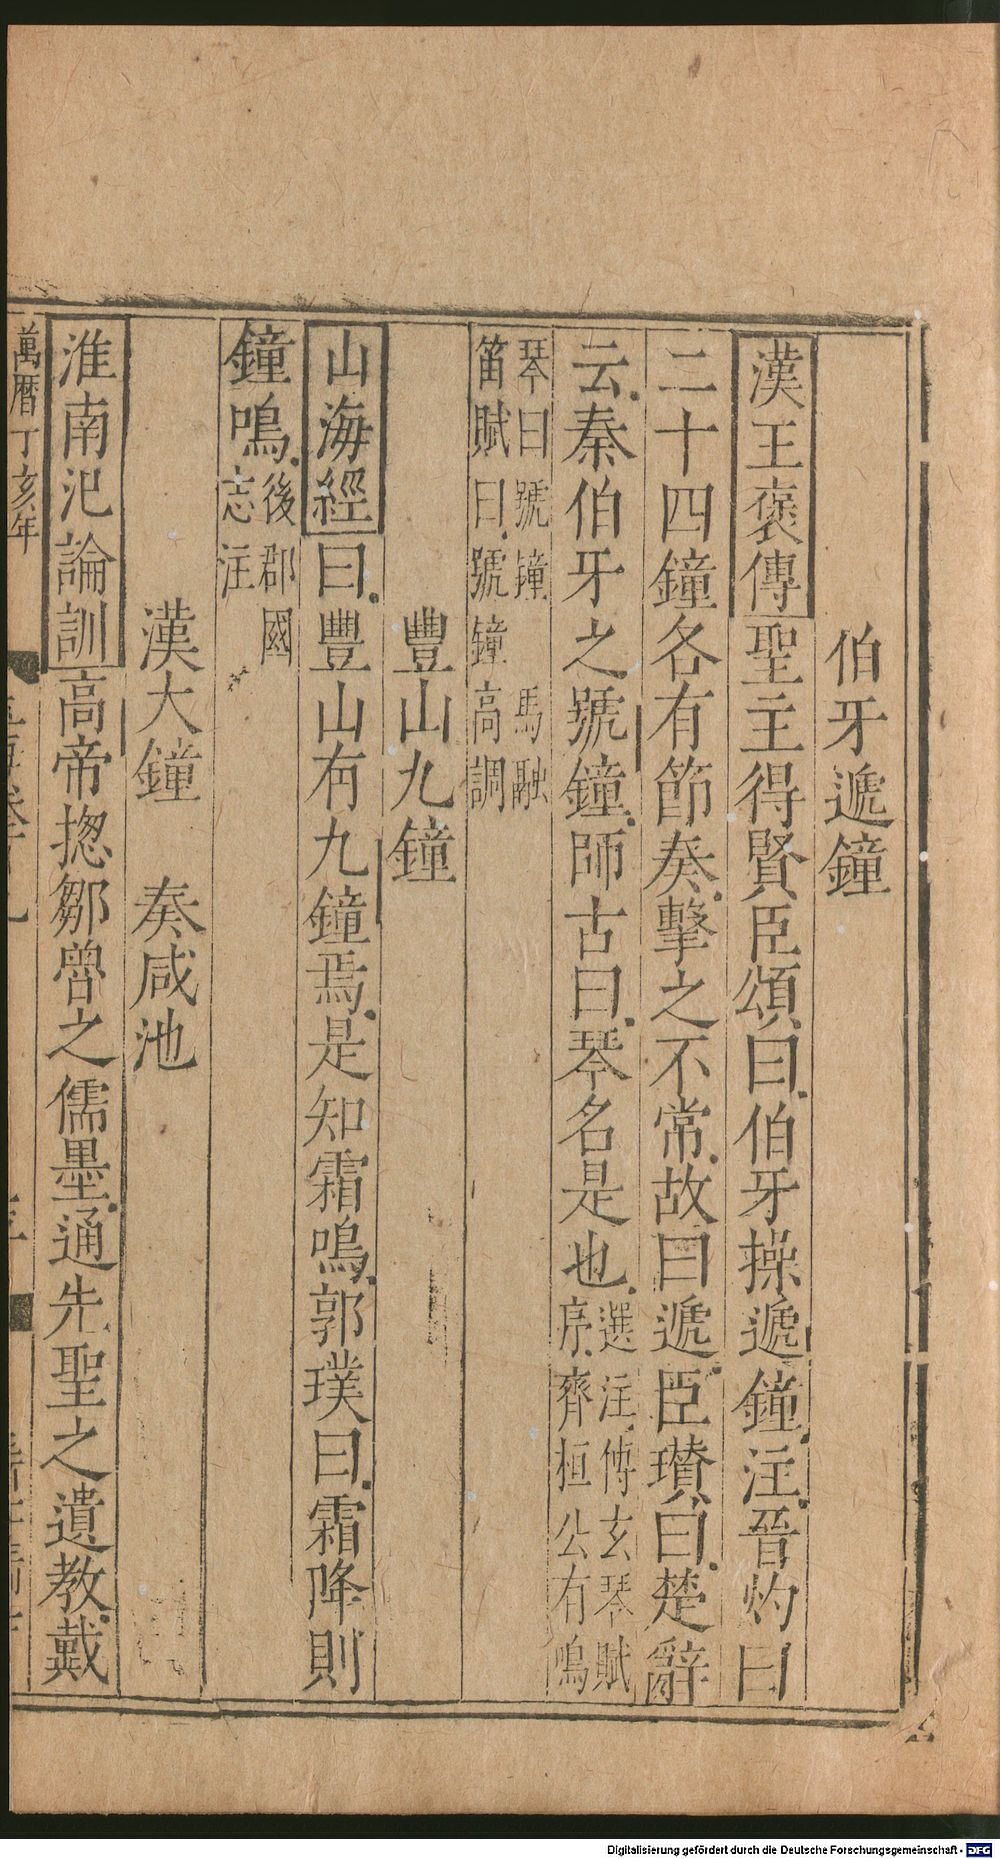 伯牙遞鐘
漢王褒傳聖主得賢臣頌曰伯牙操遞鐘注晉灼曰
二十四鐘各有節奏擊之不常故曰遞臣瓚曰楚辭
云秦伯牙之號鐘師古曰琴名是也選注傅玄琴賦
序齊桓公有鳴
琴曰號鐘馬融
笛賦曰號鐘高調
豐山九鐘
山海經曰豐山有九鐘焉是知霜鳴郭璞曰霜降則
鐘鳴後郡國
志注
漢大鐘 奏咸池
淮南氾論訓高帝揔鄒魯之儒墨通先聖之遺教戴
萬曆丁亥年
Digitalisierung gefördert durch die Deutsche Forschungsgemeinschaft - DFG